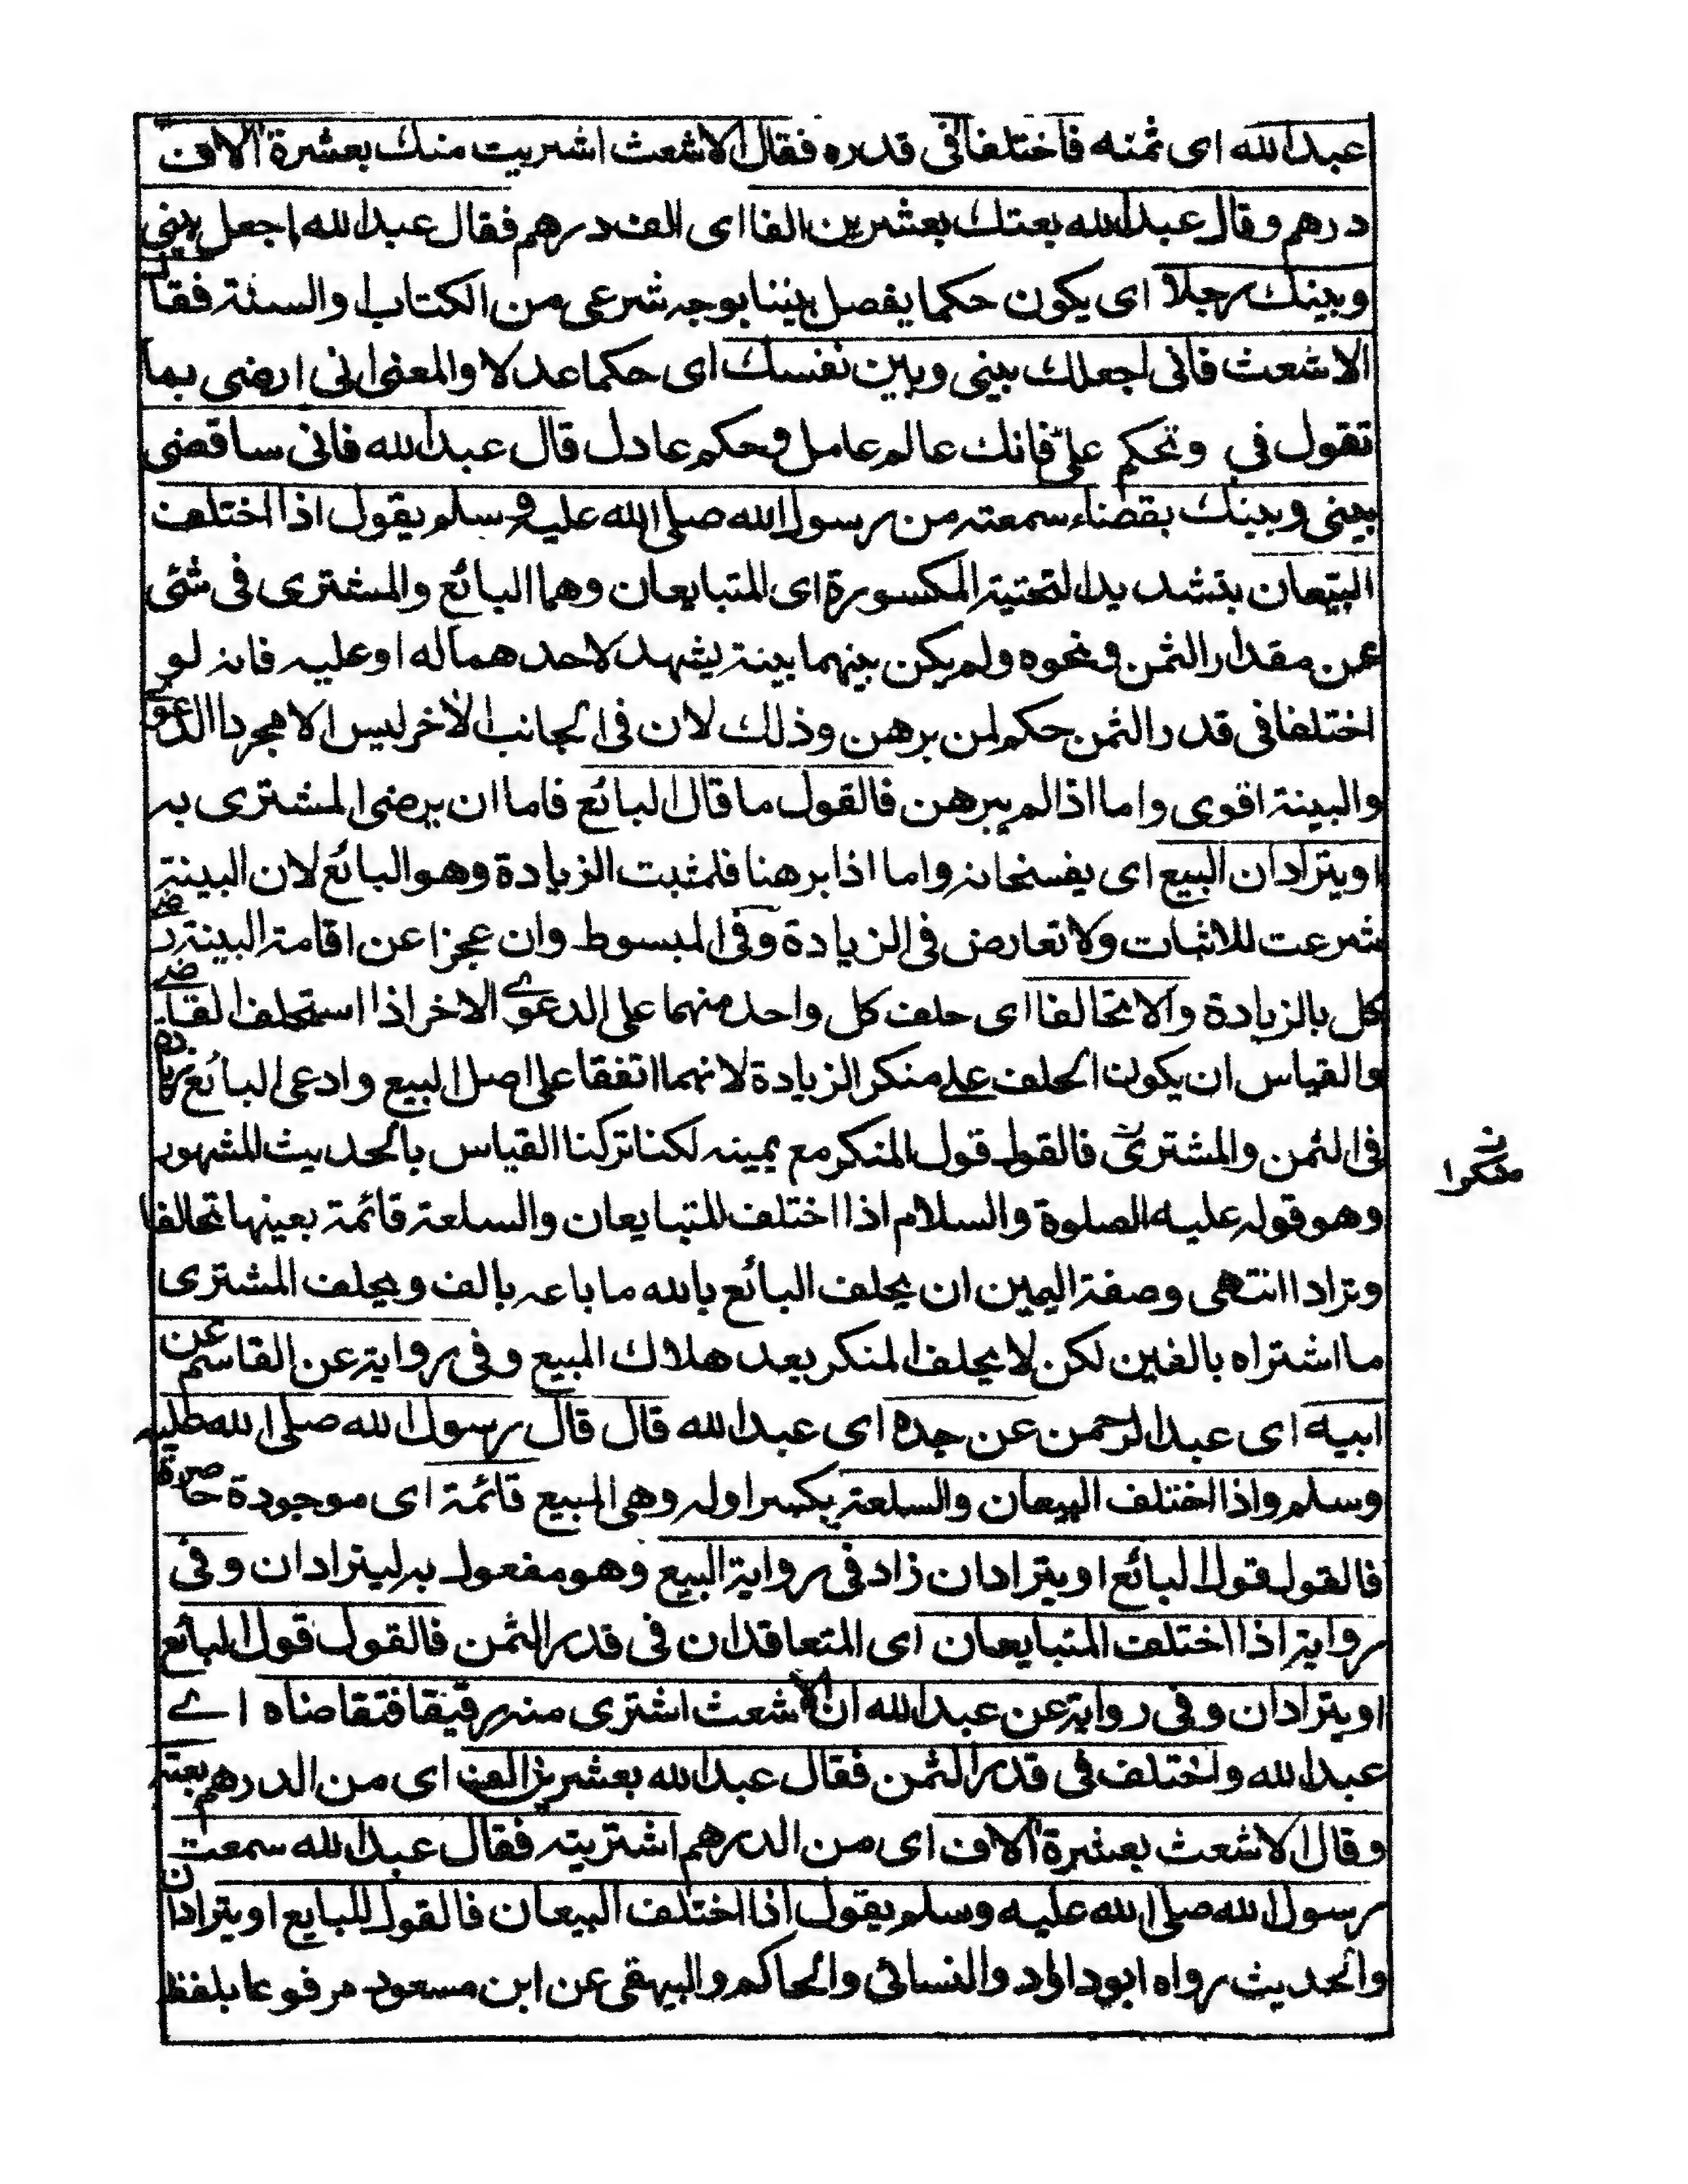 عبد الله اى ثمنه فاختلفا فى قدره فقال الاشعث اشتريت منك بعشرة الاف
درهم وقال عبد الله بعتك بعشرين الفا اى الف درهم فقال عبد الله اجعل بينى
وبينك رجلا اى يكون حكما يفصل بيننا بوجه شرعى من الكتاب والسنة فقال
الاشعث فانى اجعلك بينى وبين نفسك اى حكما عدلا والمعنى انى ارضى بما
تقول فى وتحكم علىّ فانك عالم عامل وحكم عادل قال عبد الله فانى ساقضى
بينى وبينك بقضاء سمعته من رسول الله صلى الله عليه وسلم يقول اذا اختلف
البيّعان بتشديد التحتية المكسورة اى المتبايعان وهما البائع والمشترى فى شئى
عن مقدار الثمن ونحوه ولم يكن بينهما بينة يشهد لاحدهما له او عليه فانه لو
اختلفا فى قدر الثمن حكم لمن برهن وذلك لان فى الجانب الاخر ليس الا مجرد الدعوى
والبينة اقوى واما اذا لم يبرهن فالقول ما قال البائع فاما ان يرضى المشترى به
او يترادان البيع اى يفسخانه واما اذا برهنا فلمثبت الزيادة وهو البائع لان البينة
شرعت للاثبات ولا تعارض فى الزيادة وفى المبسوط وان عجزا عن اقامة البينة رضى
كل بالزيادة والا تحالفا اى حلف كل واحد منهما على الدعوى الاخر اذا استحلف القاضى
والقياس ان يكون الحلف على منكر الزيادة لانهما اتفقا على اصل البيع وادعى البائع زيادة
فى الثمن والمشترى فالقول قول المنكر مع يمينه لكنا تركنا القياس بالحديث المشهور
منكرا
وهو قوله عليه الصلوة والسلام اذا اختلف المتبايعان والسلعة قائمة بعينها تحالفا
وترادا انتهى وصفة اليمين ان يحلف البائع بالله ما باعه بالف ويحلف المشترى
ما اشتراه بالفين لكن لا يحلف المنكر بعد هلاك المبيع وفى رواية عن القاسم عن
ابيه اى عبد الرحمن عن جده اى عبد الله قال قال رسول الله صلى الله عليه
وسلم واذا اختلف البيعان والسلعة بكسر اوله وهى المبيع قائمة اى موجودة حاضرة
فالقول قول البائع او يترادان زاد فى رواية البيع وهو مفعول به ليترادان وفى
رواية اذا اختلف المتبايعان اى المتعاقدان فى قدر الثمن فالقول قول البائع
او يترادان وفى رواية عن عبد الله ان الاشعث اشترى منه رقيقا فتقاضاه اے
عبد الله واختلف فى قدر الثمن فقال عبد الله بعشرين الف اى من الدرهم بعته
وقال الاشعث بعشرة الاف اى من الدرهم اشتريته فقال عبد الله سمعت
رسول الله صلى الله عليه وسلم يقول اذا اختلف البيعان فالقول للبايع او يترادان
والحديث رواه ابو داود والنسائى والحاكم والبيهقى عن ابن مسعود مرفوعا بلفظ